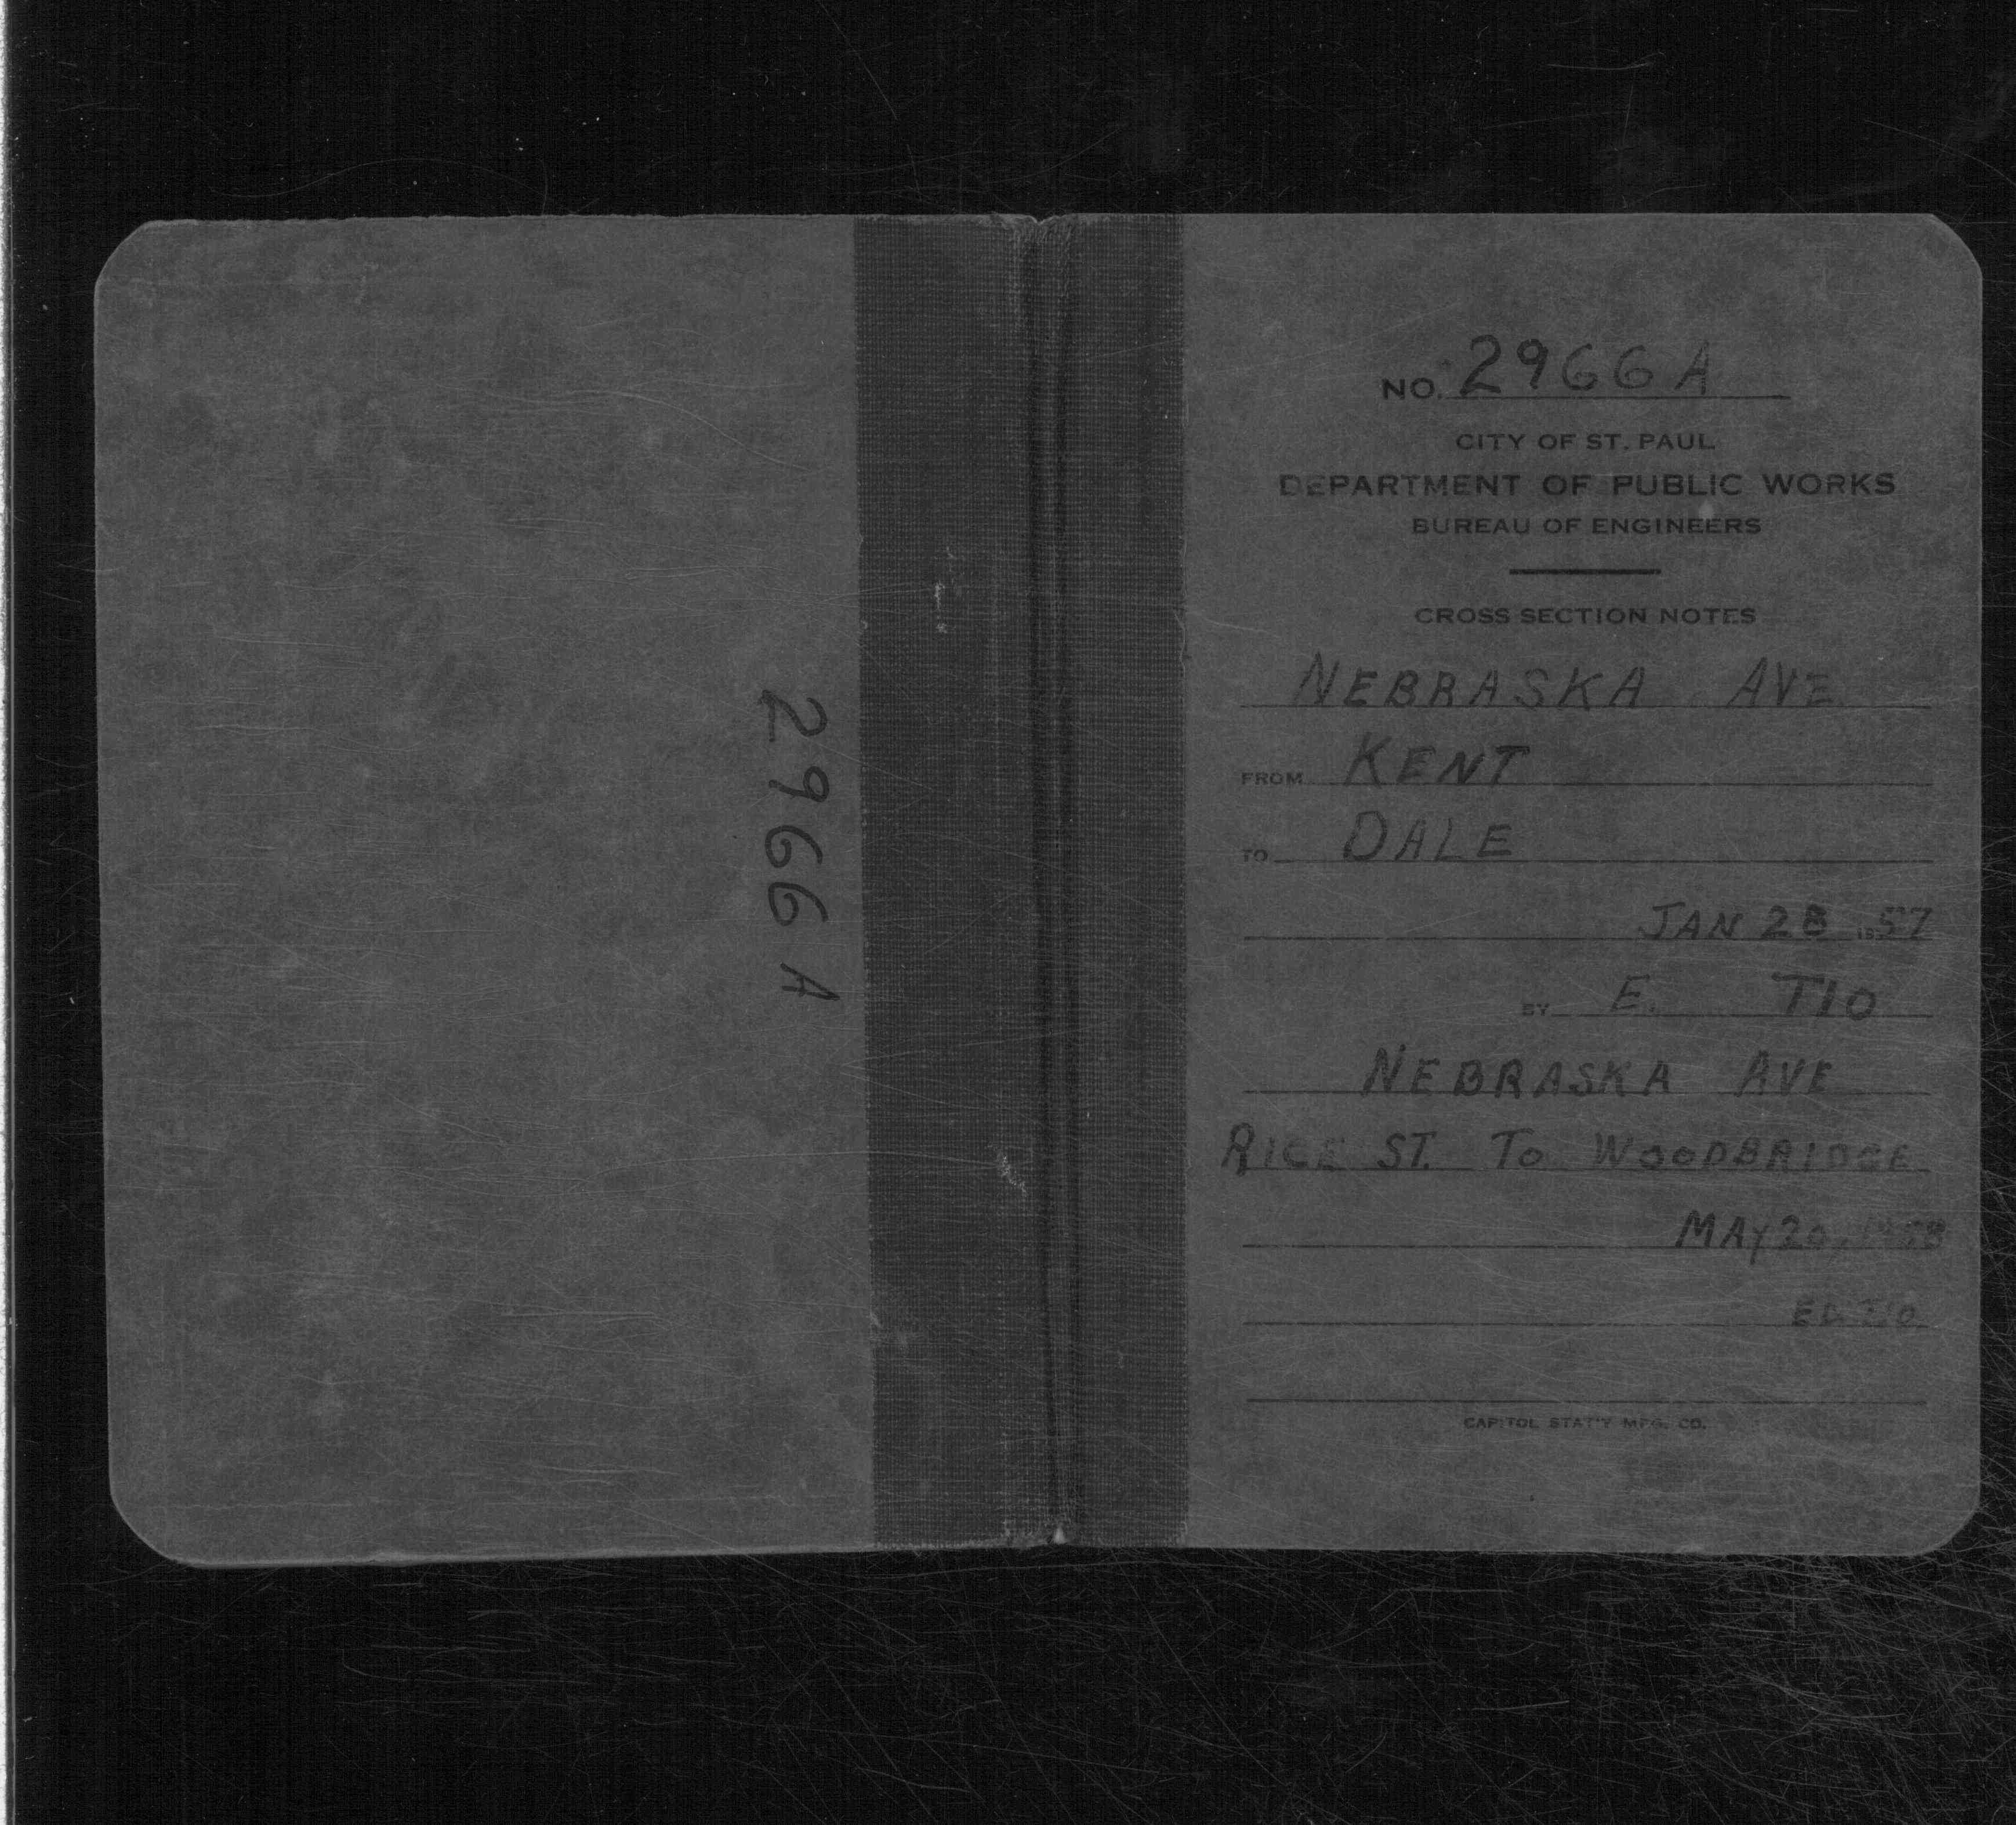 2966 A
NO. 2966 A
CITY OF ST. PAUL
DEPARTMENT OF PUBLIC WORKS
BUREAU OF ENGINEERS
CROSS SECTION NOTES
NEBRASKA AVE
FROM KENT
TO DALE
JAN 28 1957
BY E. TIO
NEBRASKA AVE
RICE ST. TO WOODBRIDGE
MAY 20, 1958
ED TIO
CAPITOL STAT'Y MFG. CO.